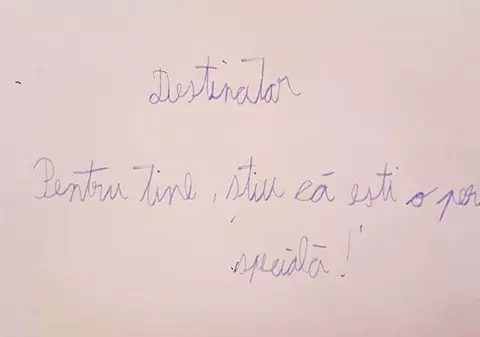 Destinatar
Pentru tine, știu că ești o per
specială!